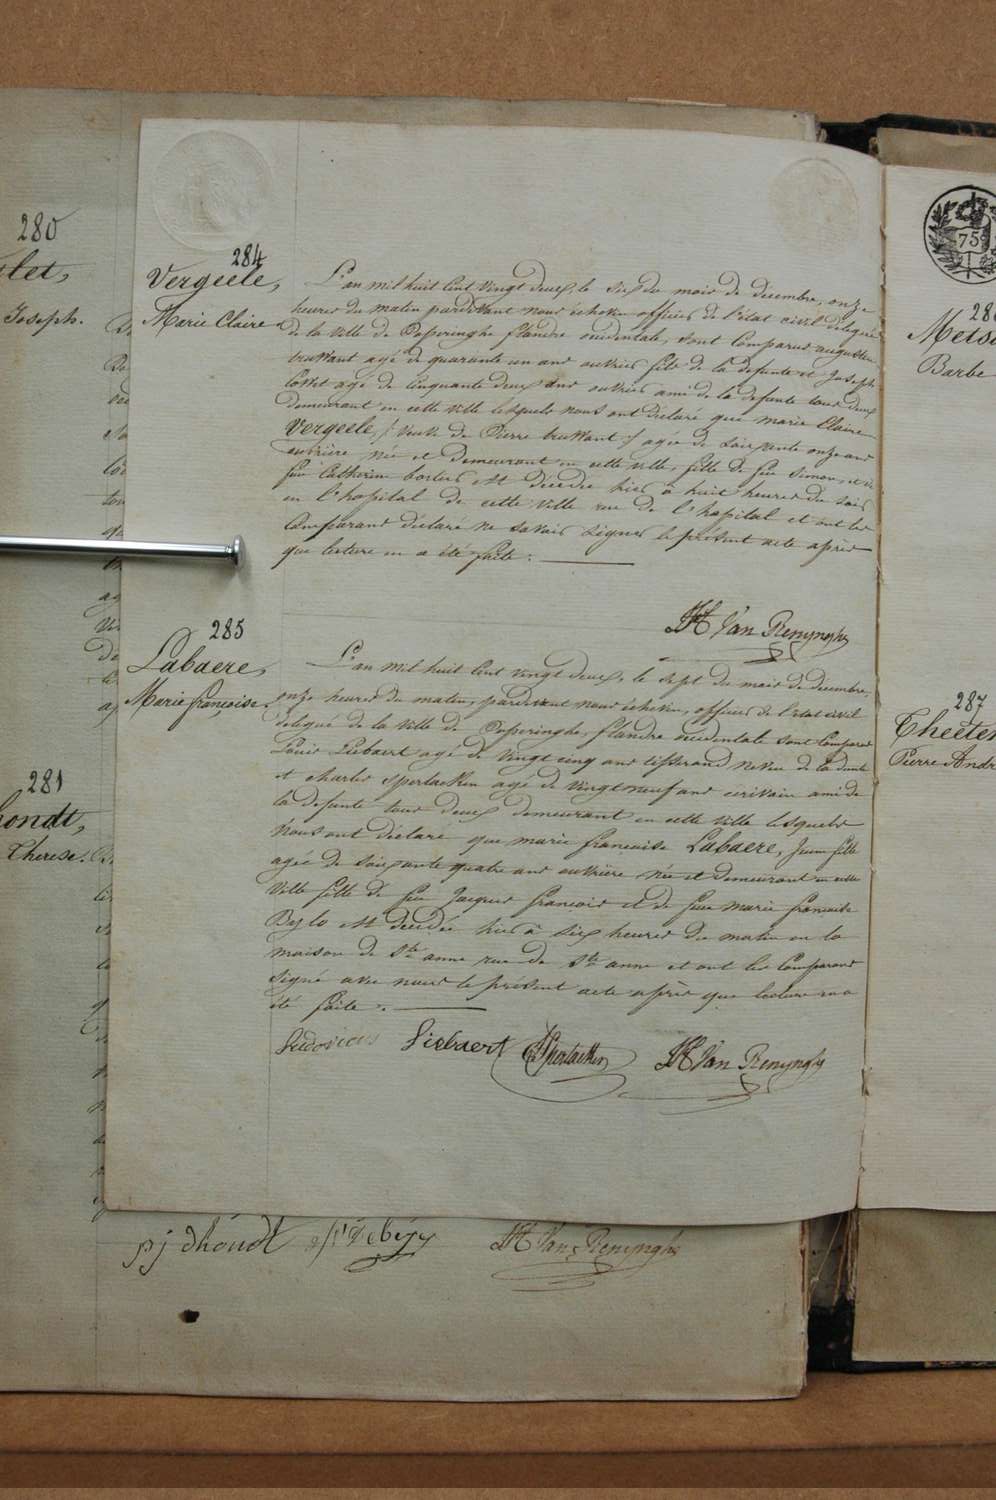 280
Joseph.
281
Therese.
284
Vergeele,
Marie Claire
L'an mil huit cent vingt deux, le six du mois de décembre, onze
heures du matin pardevant nous échevin officier de l'état civil délégué
de la ville de Poperinghe flandre occidentale, sont comparus augustin
bruttant agé de quarante un ans ouvrier fils de la defunte et Joseph
agé de cinquante deux ans ouvrier ami de la defunte tous deux
demeurant en cette ville lesquels nous ont déclaré que marie Claire
Vergeele, (veuve de Pierre bruttant) agée de soixante onze ans
ouvrière née et demeurant en cette ville, fille de feu Simon, et de
feu Catherine est décédée hier à huit heures du soir
en l'hospital de cette ville rue de l'hospital et ont les
Comparans déclaré ne savoir signer le présent acte après
que lecture en a été faite.
Van Renynghe
285
Labaere,
Marie françoise.
L'an mil huit cent vingt deux, le sept du mois de décembre,
onze heures du matin, pardevant nous échevin, officier de l'état civil
délégué de la ville de Poperinghe, flandre occidentale sont comparus
Louis Liebaert agé de vingt cinq ans tisserand neveu de la defunte
et charles Sperlaeken agé de vingt neuf ans ecrivain ami de
la defunte tous deux demeurant en cette ville lesquels
Nous ont déclaré que marie francoise Labaere, Jeune fille
agée de soixante quatre ans ouvrière née et demeurant en cette
ville fille de feu Jacques francois et de feue marie francoise
Bylo est décédée hier à six heures du matin en la
maison de Ste anne rue de Ste anne et ont les comparans
signé avec nous le présent acte après que lecture en a
été faite.
Ludovicus Liebaert Sperlaeken Van Renynghe
pj dhondt Van Renynghe
75
Barbe
287
Pierre André